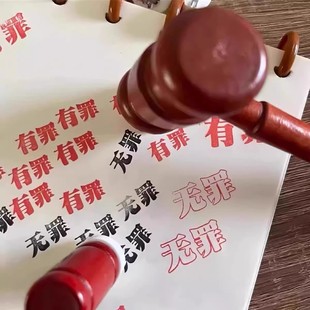 有罪
有罪 有罪
有罪 有罪 有罪 有罪
有罪 有罪 无罪
有罪 无罪 无罪
无罪 无罪 无罪
无罪